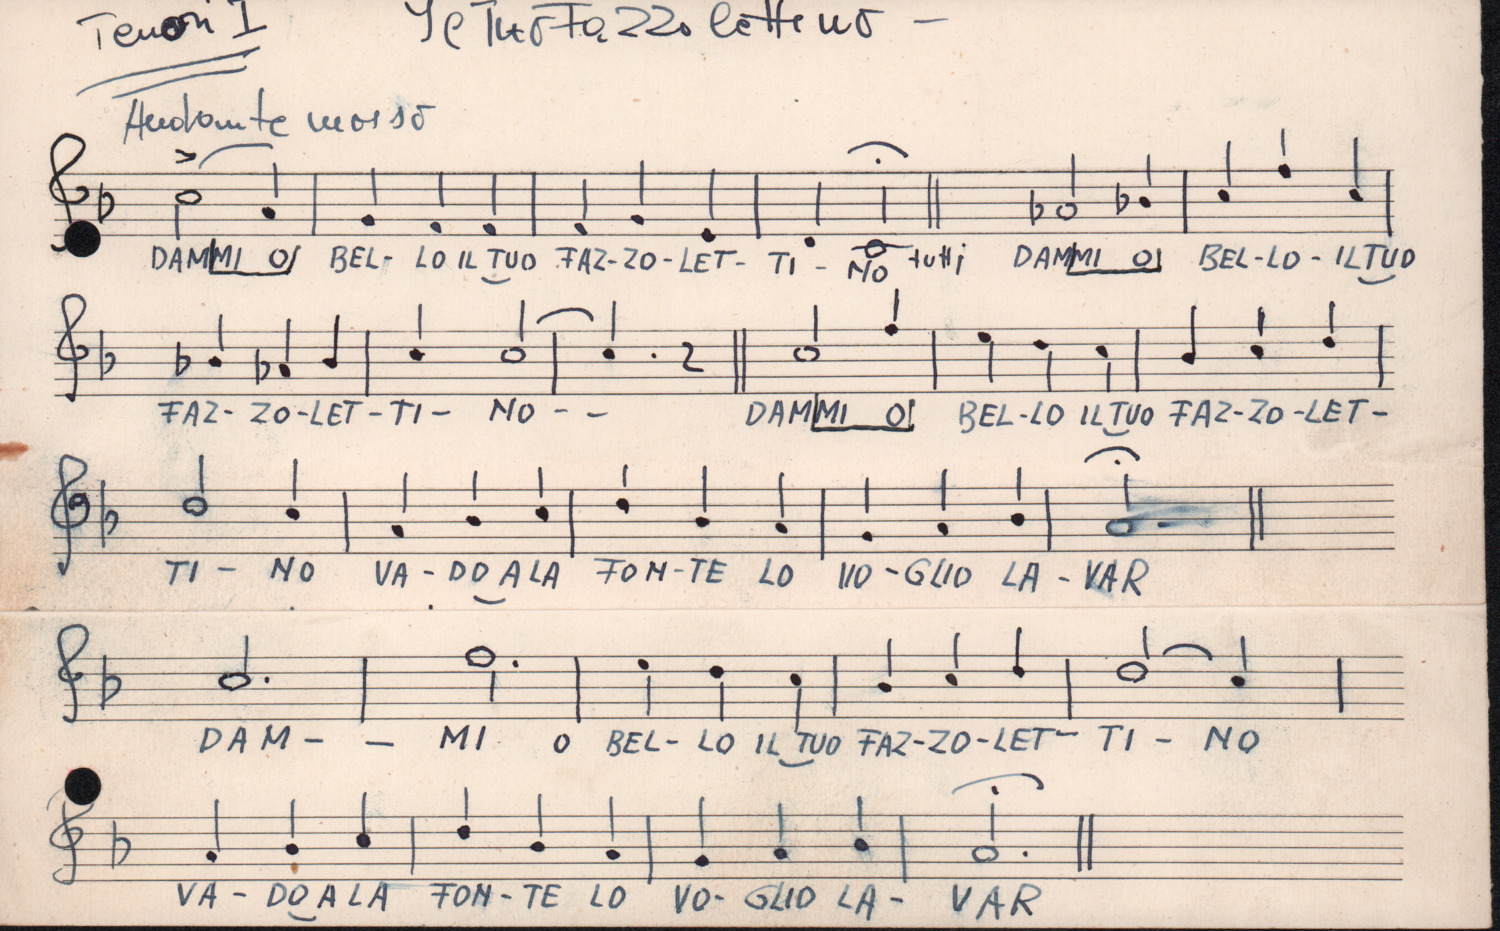 Tenori I Il Tuo Fazzolettino –
Andante mosso
DAMMI O BEL- LO IL TUO FAZ-ZO-LET- TI - NO tutti DAMMI O BEL-LO - IL TUO
FAZ- ZO-LET-TI- NO - - DAMMI O BEL-LO IL TUO FAZ-ZO-LET-
TI - NO VA-DO A LA FON-TE LO VO-GLIO LA-VAR
DAM- - MI O BEL- LO IL TUO FAZ-ZO-LET- TI- NO
VA- DO A LA FON-TE LO VO- GLIO LA- VAR